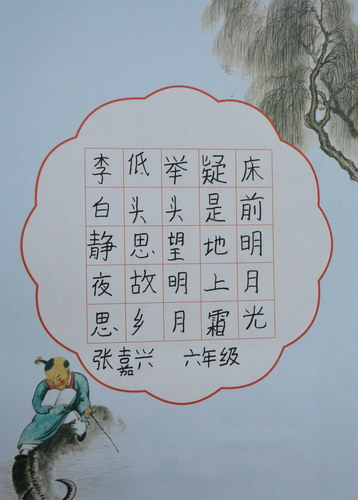 床前明月光
疑是地上霜
举头望明月
低头思故乡
李白静夜思
张嘉兴 六年级